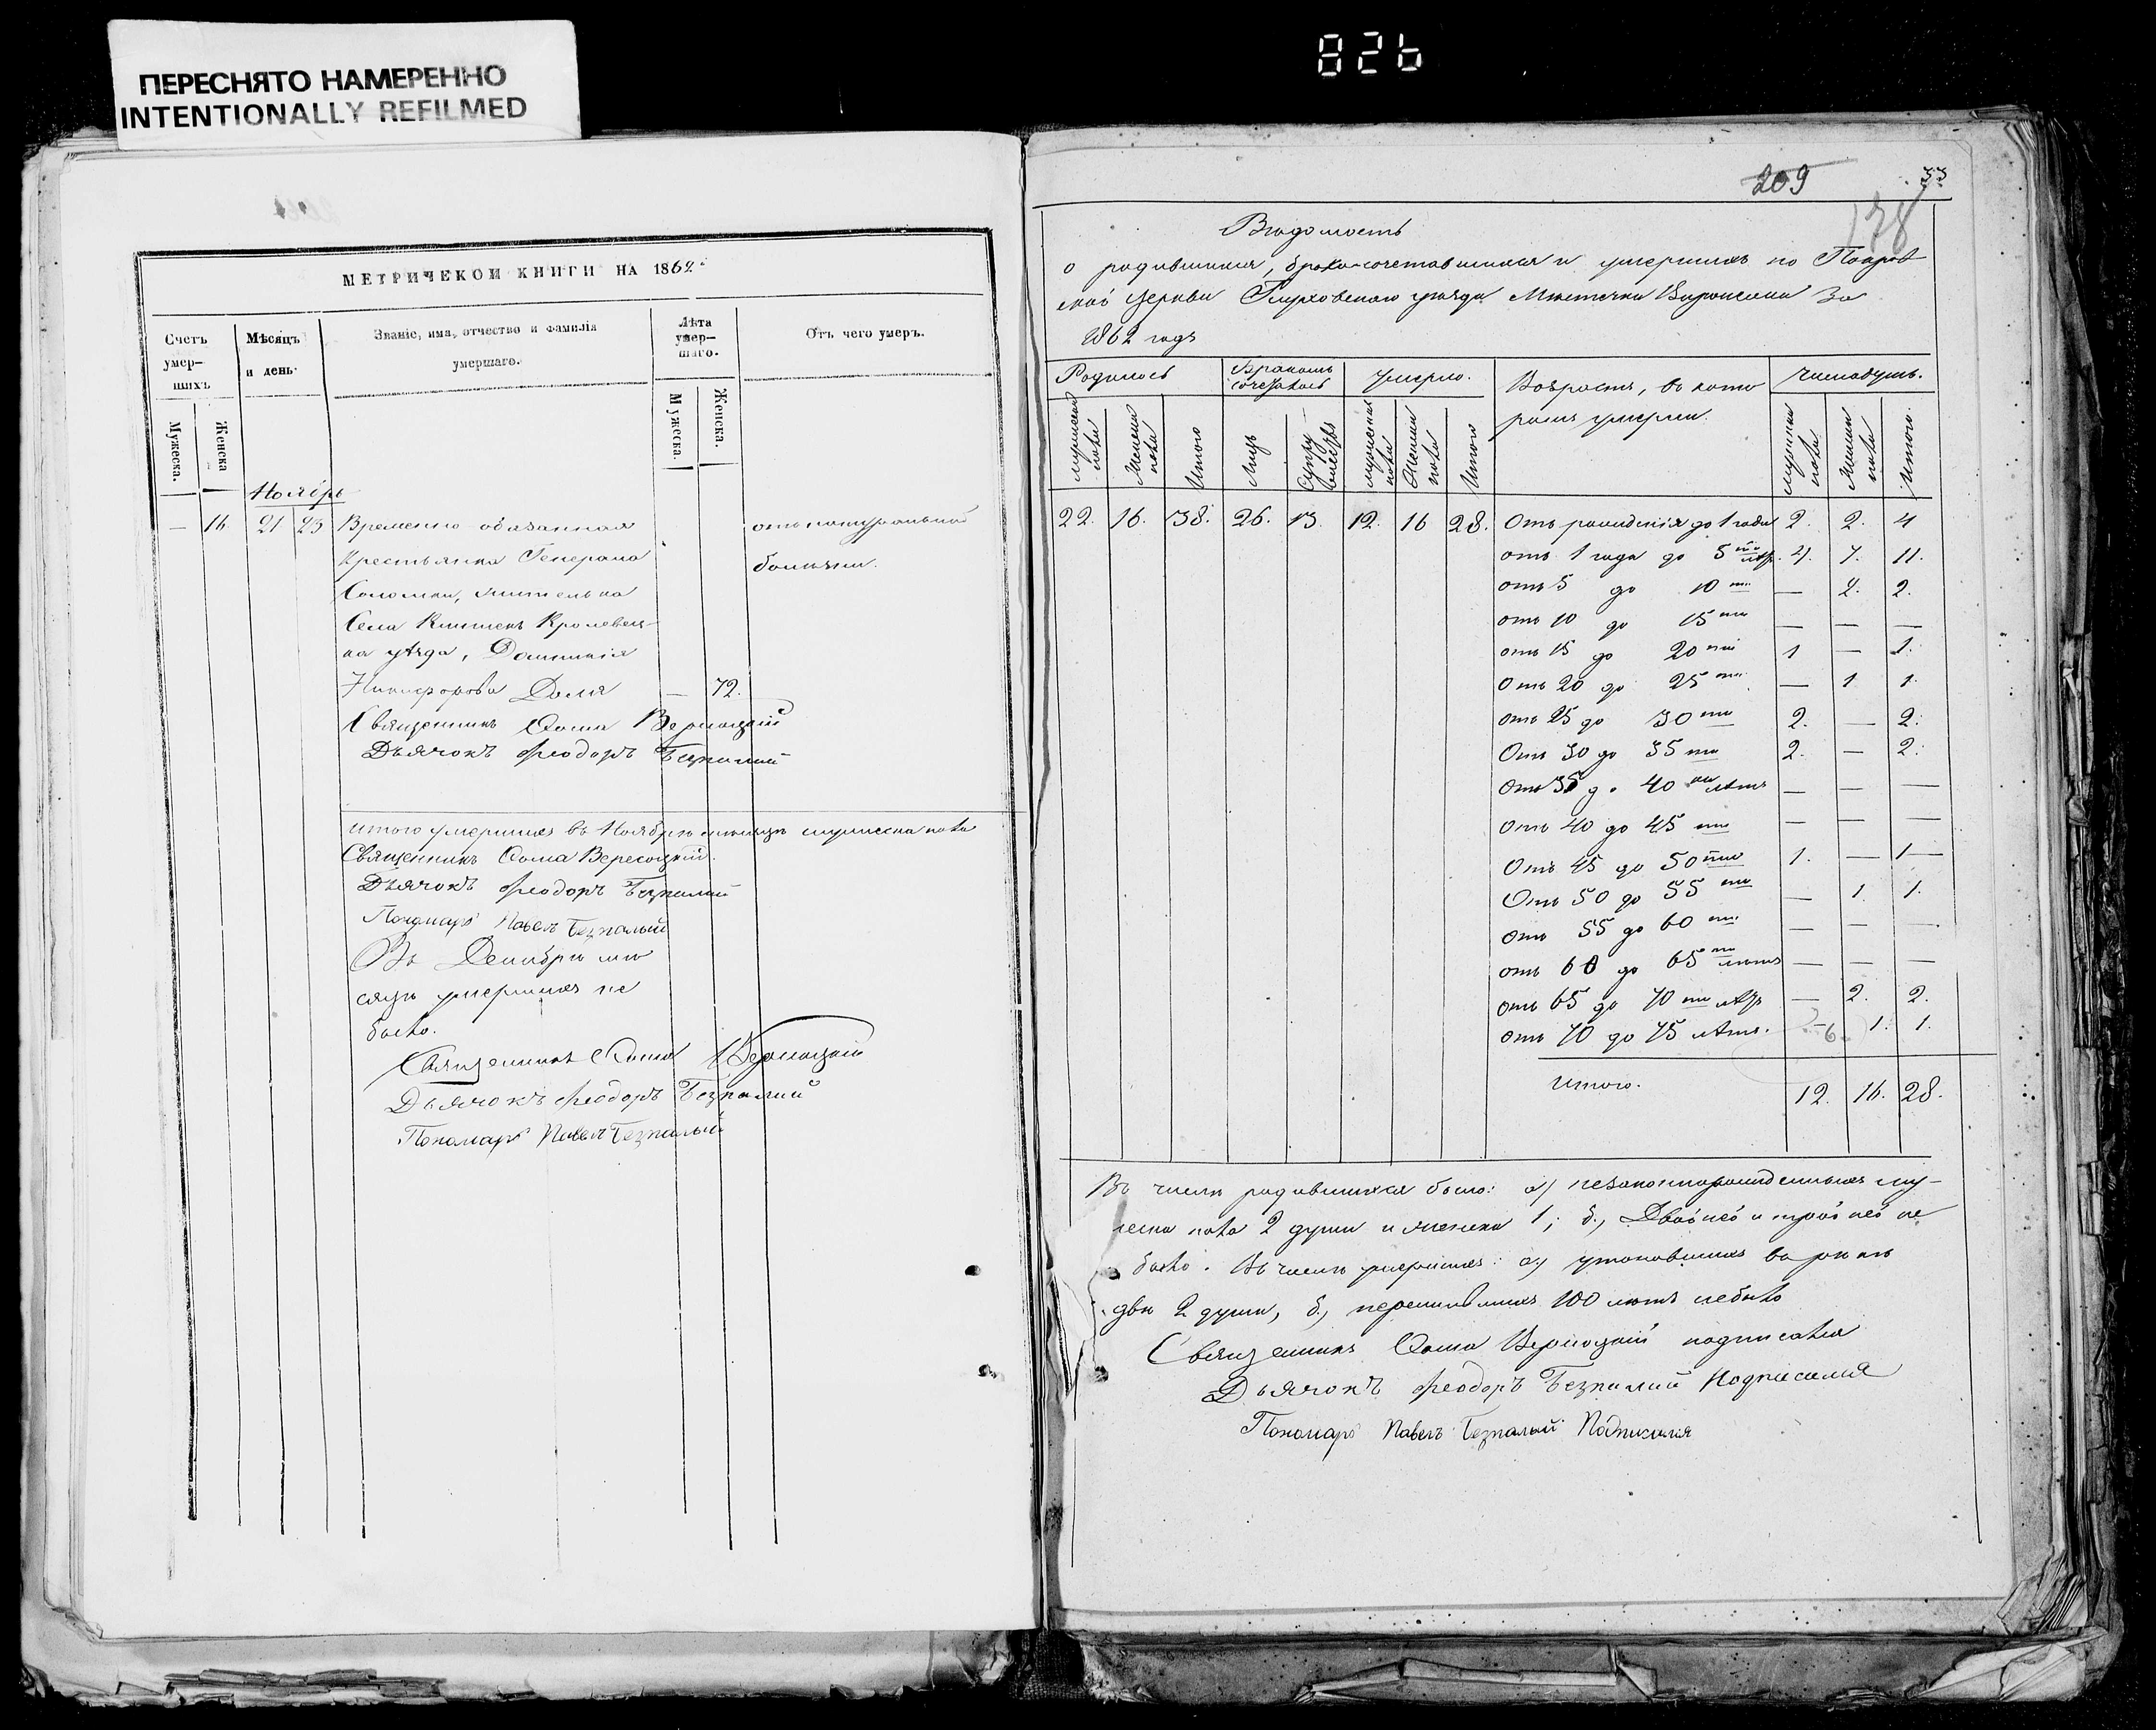 826
ПЕРЕСНЯТО НАМЕРЕННО
INTENTIONALLY REFILMED
МЕТРИЧЕСКОЙ КНИГИ НА 1862
Счетъ умер-шихъ
Мѣсяцъ и день.
Званіе, имя, отчество и фамилія умершаго.
Лѣта умер-шаго.
Отъ чего умеръ.
Мужеска. Женска Мужеска. Женска.
Ноябрь
— 16. 21 23 Временно обязанная отъ натуральной
Крестьянка Генерала болѣзни.
Соломки, жителька
Села Клишекъ Кролевец-
ка уѣзда, Домникія
Никифорова Доля — 72.
Священникъ Ѳома Вересоцкій
Дьячокъ Феодоръ Безпалый
итого умершихъ въ Ноябрѣ мѣсяцѣ мужеска пола
Священникъ Ѳома Вересоцкій.
Дьячокъ Феодоръ Безпалый
Пономарь Павелъ Безпалый
Въ Декабрѣ мѣ
сяцѣ умершихъ не
было.
Священникъ Ѳома Вересоцкій
Дьячокъ Феодоръ Безпалый
Пономарь Павелъ Безпалый
209 33
178
Вѣдомость
о родившихся, брако-сочетавшихся и умершихъ по Покров
ской Церкви Глуховскаго уѣзда Мѣстечка Воронежа за
1862 годъ
Родилось Бракомъ сочеталось Умерло. Возрастъ, въ кото ромъ умерли. Число душъ.
мужеска пола Женска пола Итого Лицъ Супру-жествъ мужеска пола Женска пола Итого мужеска пола Женска пола Итого.
22. 16. 38. 26. 13. 12. 16 28. Отъ рожденія до 1 года 2. 2. 4
отъ 1 года до 5 ти лѣтъ. 4. 7. 11.
отъ 5 до 10 ти — 2. 2.
отъ 10 до 15 ти — — —
отъ 15 до 20 ти 1 — 1.
Отъ 20 до 25 ти — 1 1.
отъ 25 до 30 ти 2. — 2.
Отъ 30 до 35 ти 2. — 2.
отъ 35 до 40 ти лѣтъ — — —
отъ 40 до 45 ти — — —
Отъ 45 до 50 ти 1. — 1
Отъ 50 до 55 ти — 1. 1.
отъ 55 до 60 ти — — —
отъ 60 до 65 ти лѣтъ — — —
отъ 65 до 70 ти лѣтъ — 2. 2.
отъ 70 до 75 лѣтъ. — 1. 1.
Итого. 12. 16. 28.
Въ числѣ родившихся было: а) незаконнорожденныхъ му-
жеска пола 2 души и женска 1; б., Двойней и тройней не
было. Въ числѣ умершихъ: а) утонувшихъ въ рѣкѣ
двѣ 2 души, б., пережившихъ 100 лѣтъ небыло
Священникъ Ѳома Вересоцкій подписался
Дьячокъ Феодоръ Безпалый Подписался
Пономарь Павелъ Безпалый Подписался